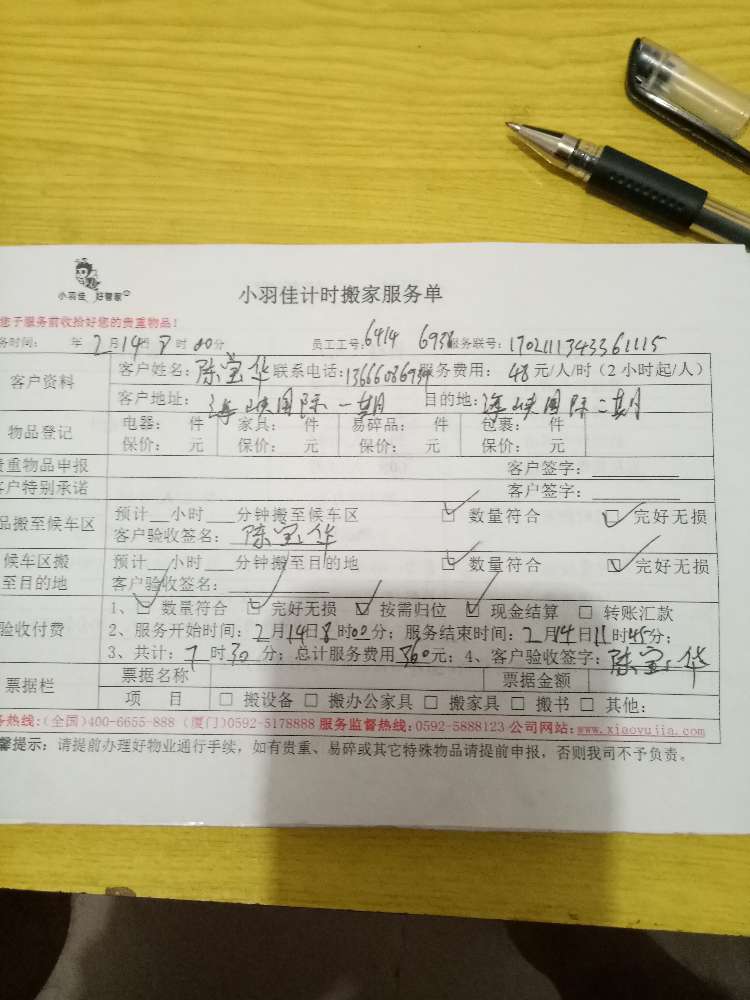 小羽佳 好管家
小羽佳计时搬家服务单
您于服务前收拾好您的贵重物品!
务时间: 年 2月14日 8时00分 员工工号:6414 6938 服务联号:
客户资料 客户姓名:陈宝华 联系电话: 服务费用: 48元/人/时(2小时起/人)
客户地址: 海峡国际一期 目的地: 海峡国际二期
物品登记 电器: 件 家具: 件 易碎品: 件 包裹: 件
保价: 元 保价: 元 保价: 元 保价: 元
贵重物品申报 客户签字:
客户特别承诺 客户签字:
品搬至候车区 预计___小时___分钟搬至候车区 ☑ 数量符合 ☑ 完好无损
客户验收签名: 陈宝华
候车区搬至目的地 预计___小时___分钟搬至目的地 ☑ 数量符合 ☑ 完好无损
客户验收签名:
验收付费 1、☑ 数量符合 ☑ 完好无损 ☑ 按需归位 ☑ 现金结算 □ 转账汇款
2、服务开始时间:2月14日8时00分;服务结束时间:2月14日11时45分;
3、共计:7时30分;总计服务费用360元;4、客户验收签字:陈宝华
票据栏 票据名称 票据金额
项 目 □ 搬设备 □ 搬办公家具 □ 搬家具 □ 搬书 □ 其他:
务热线:(全国)400-6655-888 (厦门)0592-5178888 服务监督热线:0592-5888123 公司网站:www.xiaoyujia.com
馨提示:请提前办理好物业通行手续,如有贵重、易碎或其它特殊物品请提前申报,否则我司不予负责。